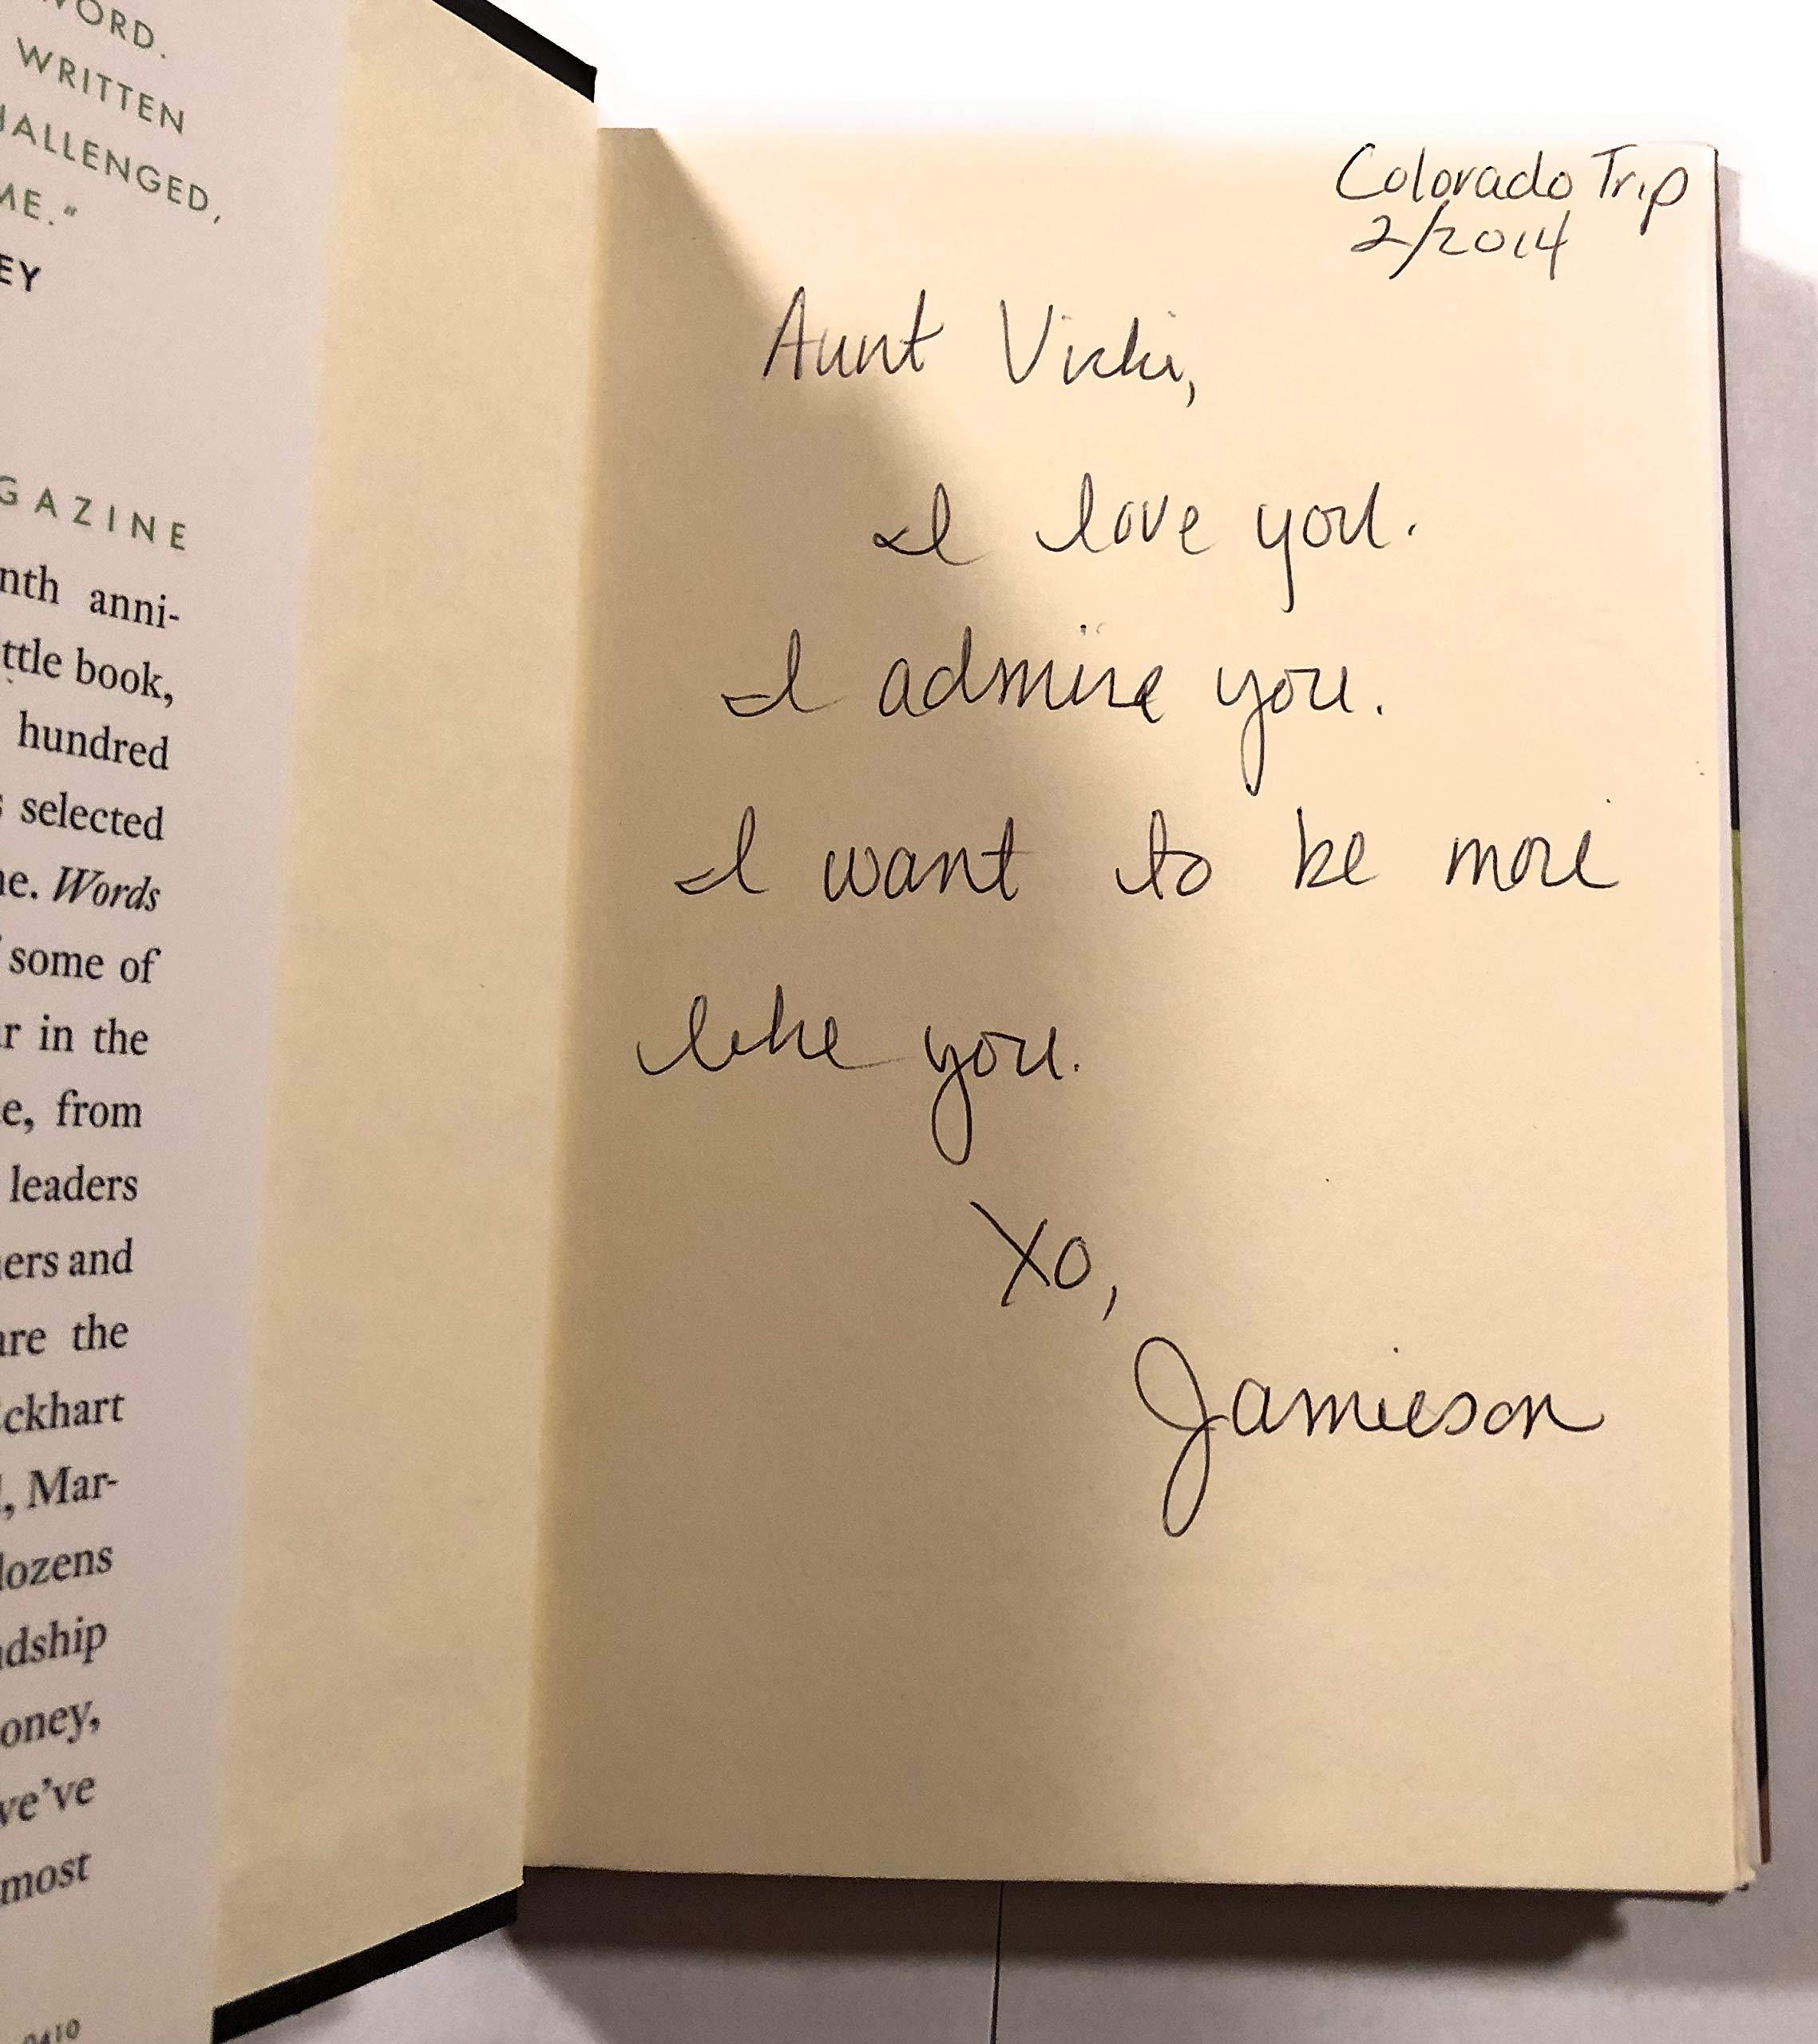 WORD.
WRITTEN
HALLENGED,
ME."
EY
GAZINE
nth anni-
ttle book,
hundred
s selected
ne. Words
some of
r in the
e, from
leaders
ers and
are the
Eckhart
, Mar-
dozens
ndship
oney,
we've
most
0410
Colorado Trip
2/2014
Aunt Vicki,
I love you.
I admire you.
I want to be more
like you.
XO,
Jamieson